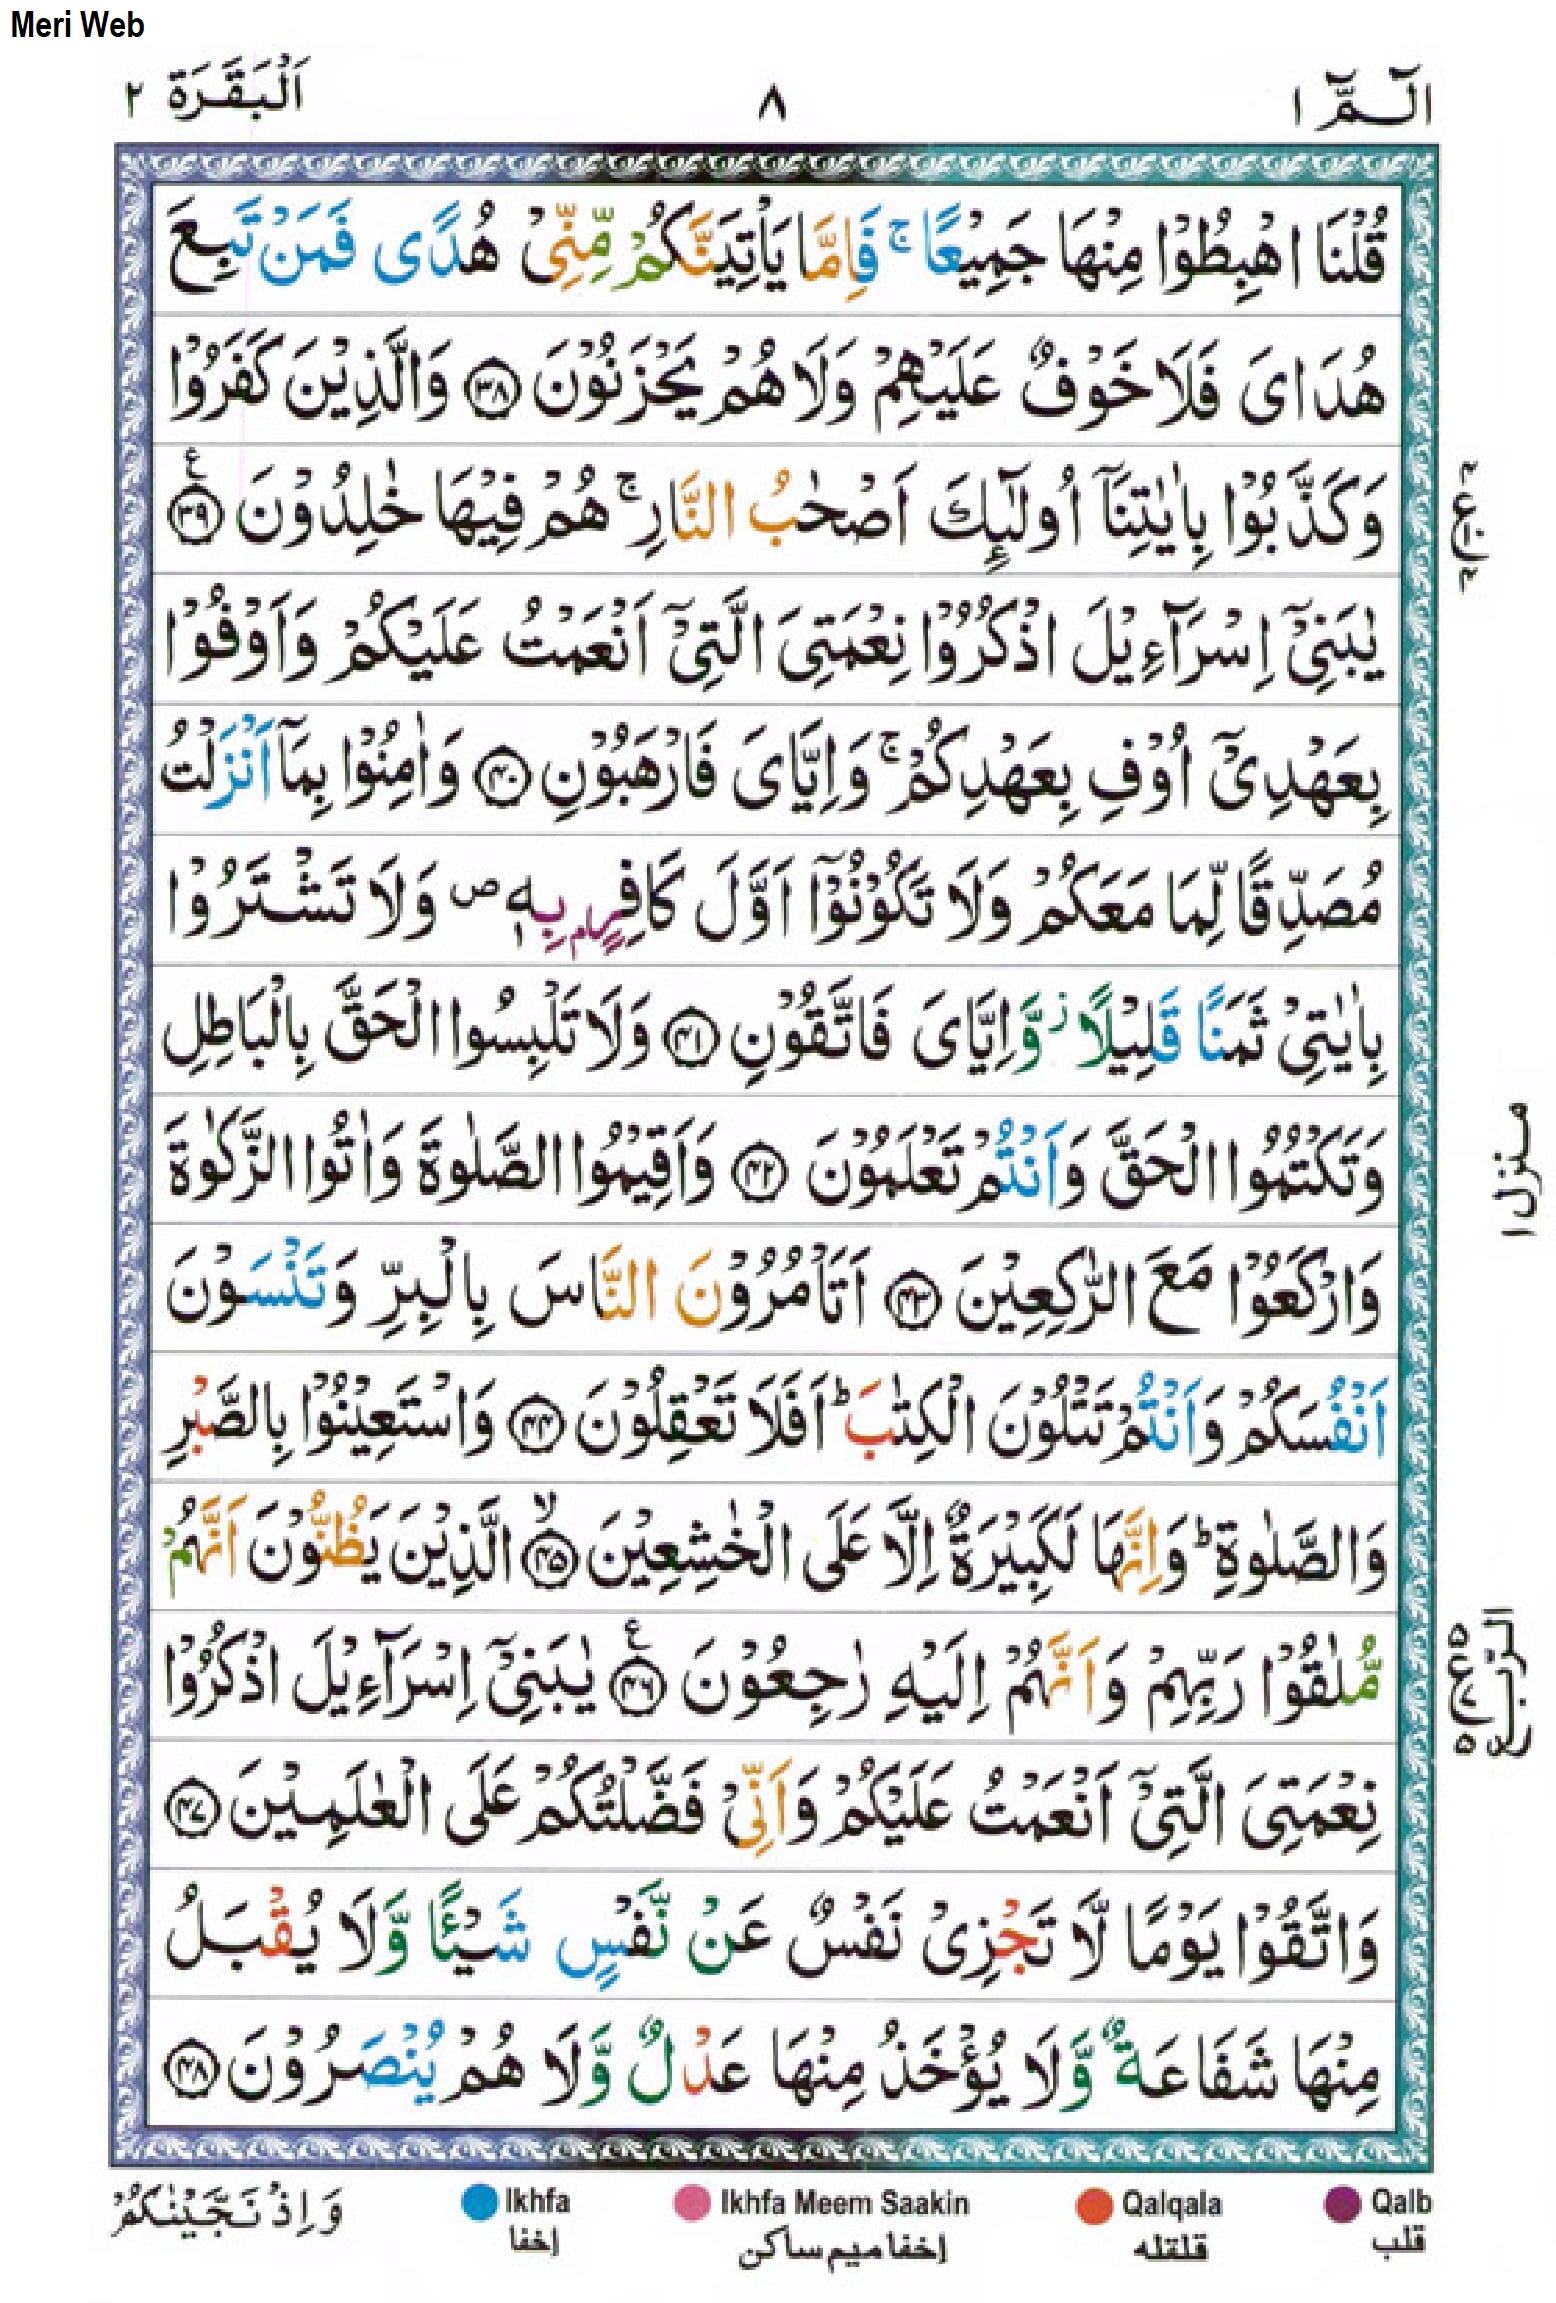 Meri Web
الٓـمّٓ ١
٨
اَلْبَقَرَة ٢
قُلْنَا اهْبِطُوْا مِنْهَا جَمِيْعًا ۚ فَاِمَّا يَاْتِيَنَّكُمْ مِّنِّىْ هُدًى فَمَنْ تَبِعَ
هُدَاىَ فَلَا خَوْفٌ عَلَيْهِمْ وَلَا هُمْ يَحْزَنُوْنَ ﴿٣٨﴾ وَالَّذِيْنَ كَفَرُوْا
وَكَذَّبُوْا بِاٰيٰتِنَآ اُولٰٓئِكَ اَصْحٰبُ النَّارِ ۚ هُمْ فِيْهَا خٰلِدُوْنَ ﴿٣٩﴾ ع
يٰبَنِىْٓ اِسْرَآءِيْلَ اذْكُرُوْا نِعْمَتِىَ الَّتِىْٓ اَنْعَمْتُ عَلَيْكُمْ وَاَوْفُوْا
بِعَهْدِىْٓ اُوْفِ بِعَهْدِكُمْ ۚ وَاِيَّاىَ فَارْهَبُوْنِ ﴿٤٠﴾ وَاٰمِنُوْا بِمَآ اَنْزَلْتُ
مُصَدِّقًا لِّمَا مَعَكُمْ وَلَا تَكُوْنُوْٓا اَوَّلَ كَافِرٍۭ بِهٖ ص وَلَا تَشْتَرُوْا
بِاٰيٰتِىْ ثَمَنًا قَلِيْلًا ز وَّاِيَّاىَ فَاتَّقُوْنِ ﴿٤١﴾ وَلَا تَلْبِسُوا الْحَقَّ بِالْبَاطِلِ
وَتَكْتُمُوا الْحَقَّ وَاَنْتُمْ تَعْلَمُوْنَ ﴿٤٢﴾ وَاَقِيْمُوا الصَّلٰوةَ وَاٰتُوا الزَّكٰوةَ
وَارْكَعُوْا مَعَ الرّٰكِعِيْنَ ﴿٤٣﴾ اَتَاْمُرُوْنَ النَّاسَ بِالْبِرِّ وَتَنْسَوْنَ
اَنْفُسَكُمْ وَاَنْتُمْ تَتْلُوْنَ الْكِتٰبَ ؕ اَفَلَا تَعْقِلُوْنَ ﴿٤٤﴾ وَاسْتَعِيْنُوْا بِالصَّبْرِ
وَالصَّلٰوةِ ؕ وَاِنَّهَا لَكَبِيْرَةٌ اِلَّا عَلَى الْخٰشِعِيْنَ ﴿٤٥﴾ ۙ الَّذِيْنَ يَظُنُّوْنَ اَنَّهُمْ
مُّلٰقُوْا رَبِّهِمْ وَاَنَّهُمْ اِلَيْهِ رٰجِعُوْنَ ﴿٤٦﴾ ع يٰبَنِىْٓ اِسْرَآءِيْلَ اذْكُرُوْا
نِعْمَتِىَ الَّتِىْٓ اَنْعَمْتُ عَلَيْكُمْ وَاَنِّىْ فَضَّلْتُكُمْ عَلَى الْعٰلَمِيْنَ ﴿٤٧﴾
وَاتَّقُوْا يَوْمًا لَّا تَجْزِىْ نَفْسٌ عَنْ نَّفْسٍ شَيْئًا وَّلَا يُقْبَلُ
مِنْهَا شَفَاعَةٌ وَّلَا يُؤْخَذُ مِنْهَا عَدْلٌ وَّلَا هُمْ يُنْصَرُوْنَ ﴿٤٨﴾
منزل ١
الربع
وَاِذْ نَجَّيْنٰكُمْ
Ikhfa
إخفا
Ikhfa Meem Saakin
إخفا ميم ساكن
Qalqala
قلقله
Qalb
قلب